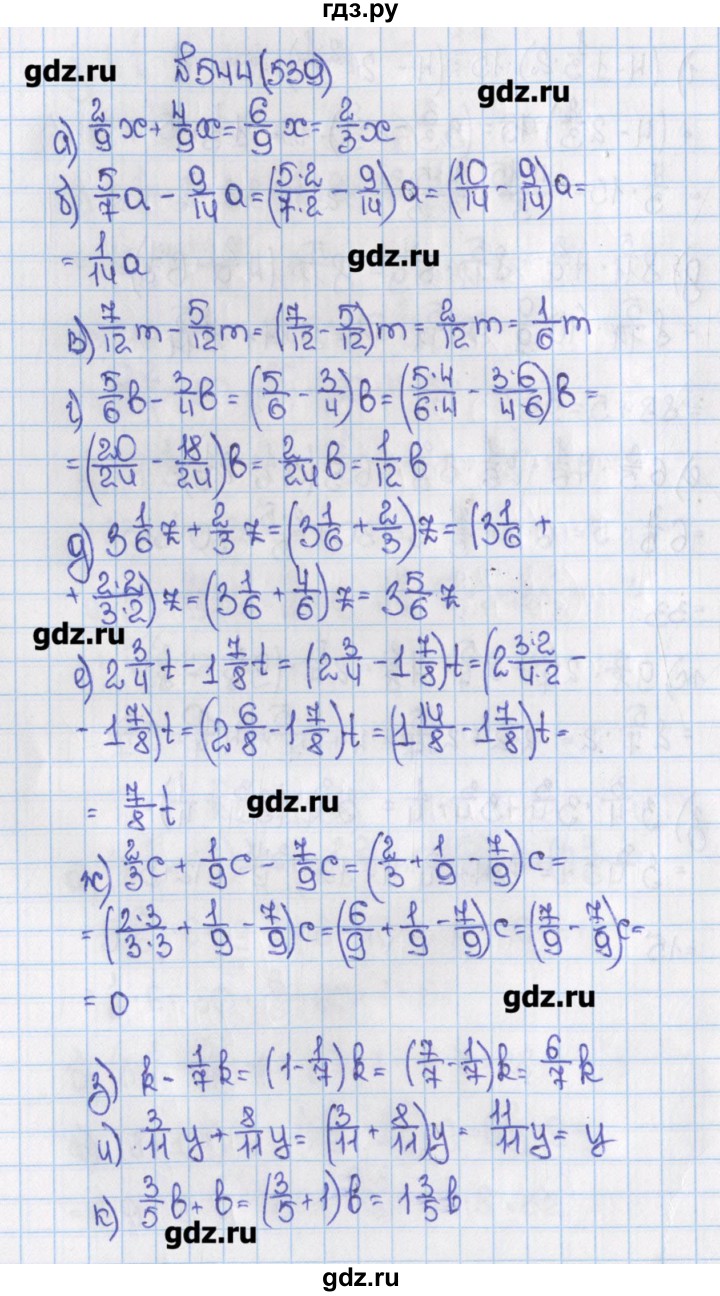 гдз.ру
gdz.ru №544(539) gdz.ru
а) 2/9 x + 4/9 x = 6/9 x = 2/3 x
б) 5/7 a - 9/14 a = (5·2/7·2 - 9/14) a = (10/14 - 9/14) a =
= 1/14 a gdz.ru
в) 7/12 m - 5/12 m = (7/12 - 5/12) m = 2/12 m = 1/6 m
г) 5/6 b - 3/4 b = (5/6 - 3/4) b = (5·4/6·4 - 3·6/4·6) b =
= (20/24 - 18/24) b = 2/24 b = 1/12 b
д) 3 1/6 z + 2/3 z = (3 1/6 + 2/3) z = (3 1/6 +
+ 2·2/3·2) z = (3 1/6 + 4/6) z = 3 5/6 z
gdz.ru
е) 2 3/4 t - 1 7/8 t = (2 3/4 - 1 7/8) t = (2 3·2/4·2 -
- 1 7/8) t = (2 6/8 - 1 7/8) t = (1 14/8 - 1 7/8) t =
= 7/8 t gdz.ru
ж) 2/3 c + 1/9 c - 7/9 c = (2/3 + 1/9 - 7/9) c =
= (2·3/3·3 + 1/9 - 7/9) c = (6/9 + 1/9 - 7/9) c = (7/9 - 7/9) c =
= 0 gdz.ru
з) k - 1/7 k = (1 - 1/7) k = (7/7 - 1/7) k = 6/7 k
и) 3/11 y + 8/11 y = (3/11 + 8/11) y = 11/11 y = y
к) 3/5 b + b = (3/5 + 1) b = 1 3/5 b
gdz.ru
gdz.ru